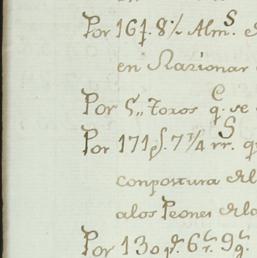 Por 161p. 8½ Alm.s d
en Razionar
Por 5,, Toros q.e se
Por 171ps. 7¼ rr.s q
conpostura del
alos Peones dela
Por 130 ps. 6 rr. 9 g.